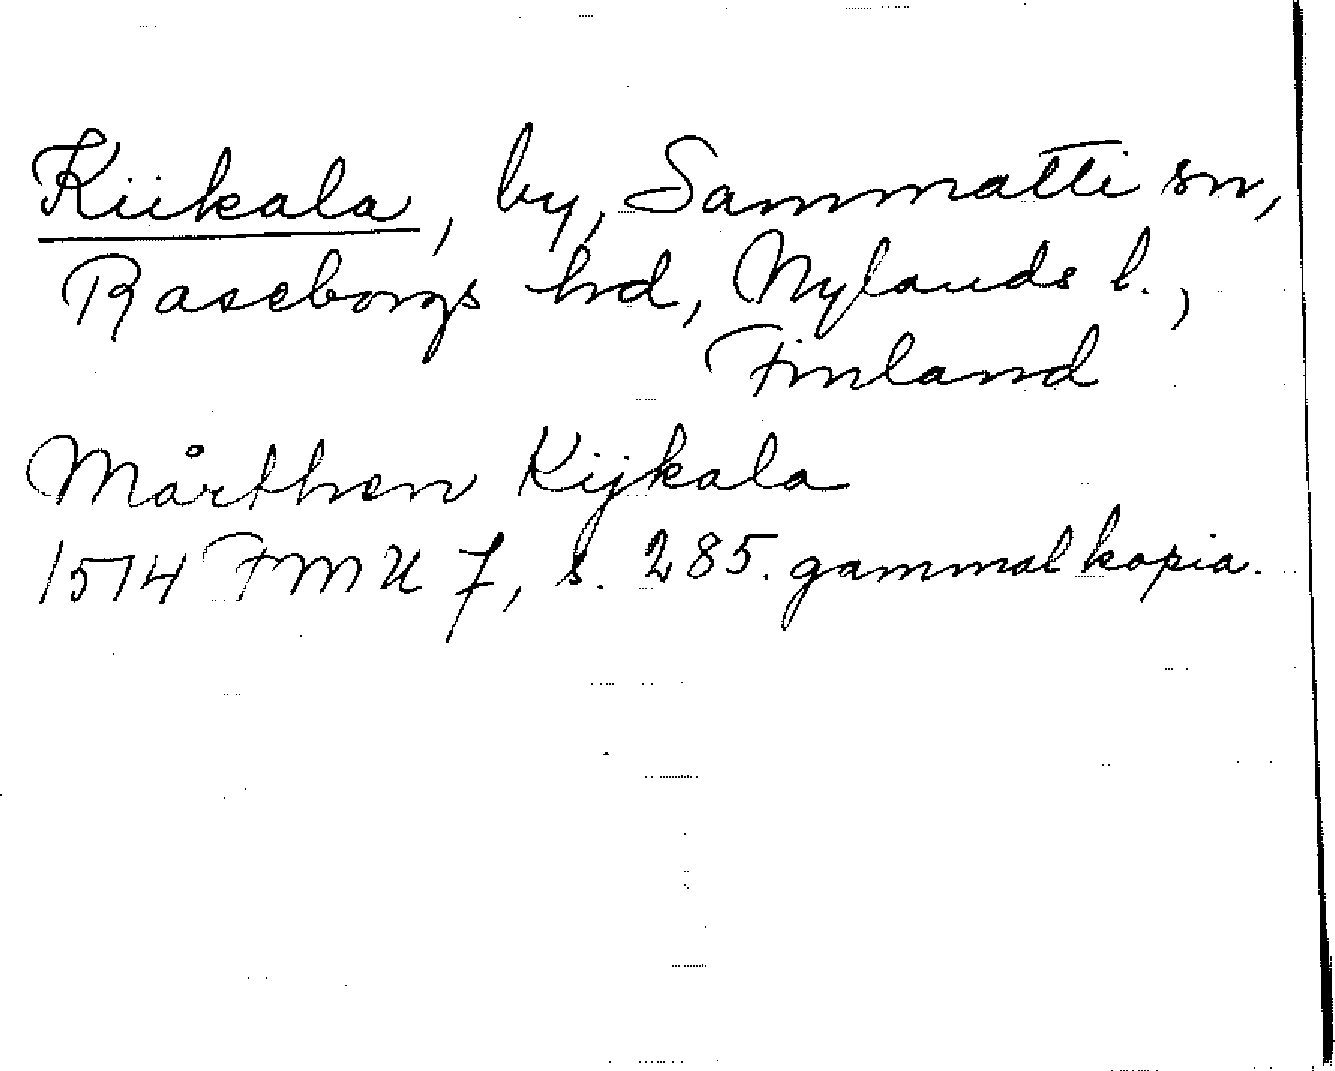 Kiikala, by, Sammatti sn,
Raseborgs hd, Nylands l.,
Finland
Mårthen Kijkala
1514 FMU 7, s. 285. gammal kopia.